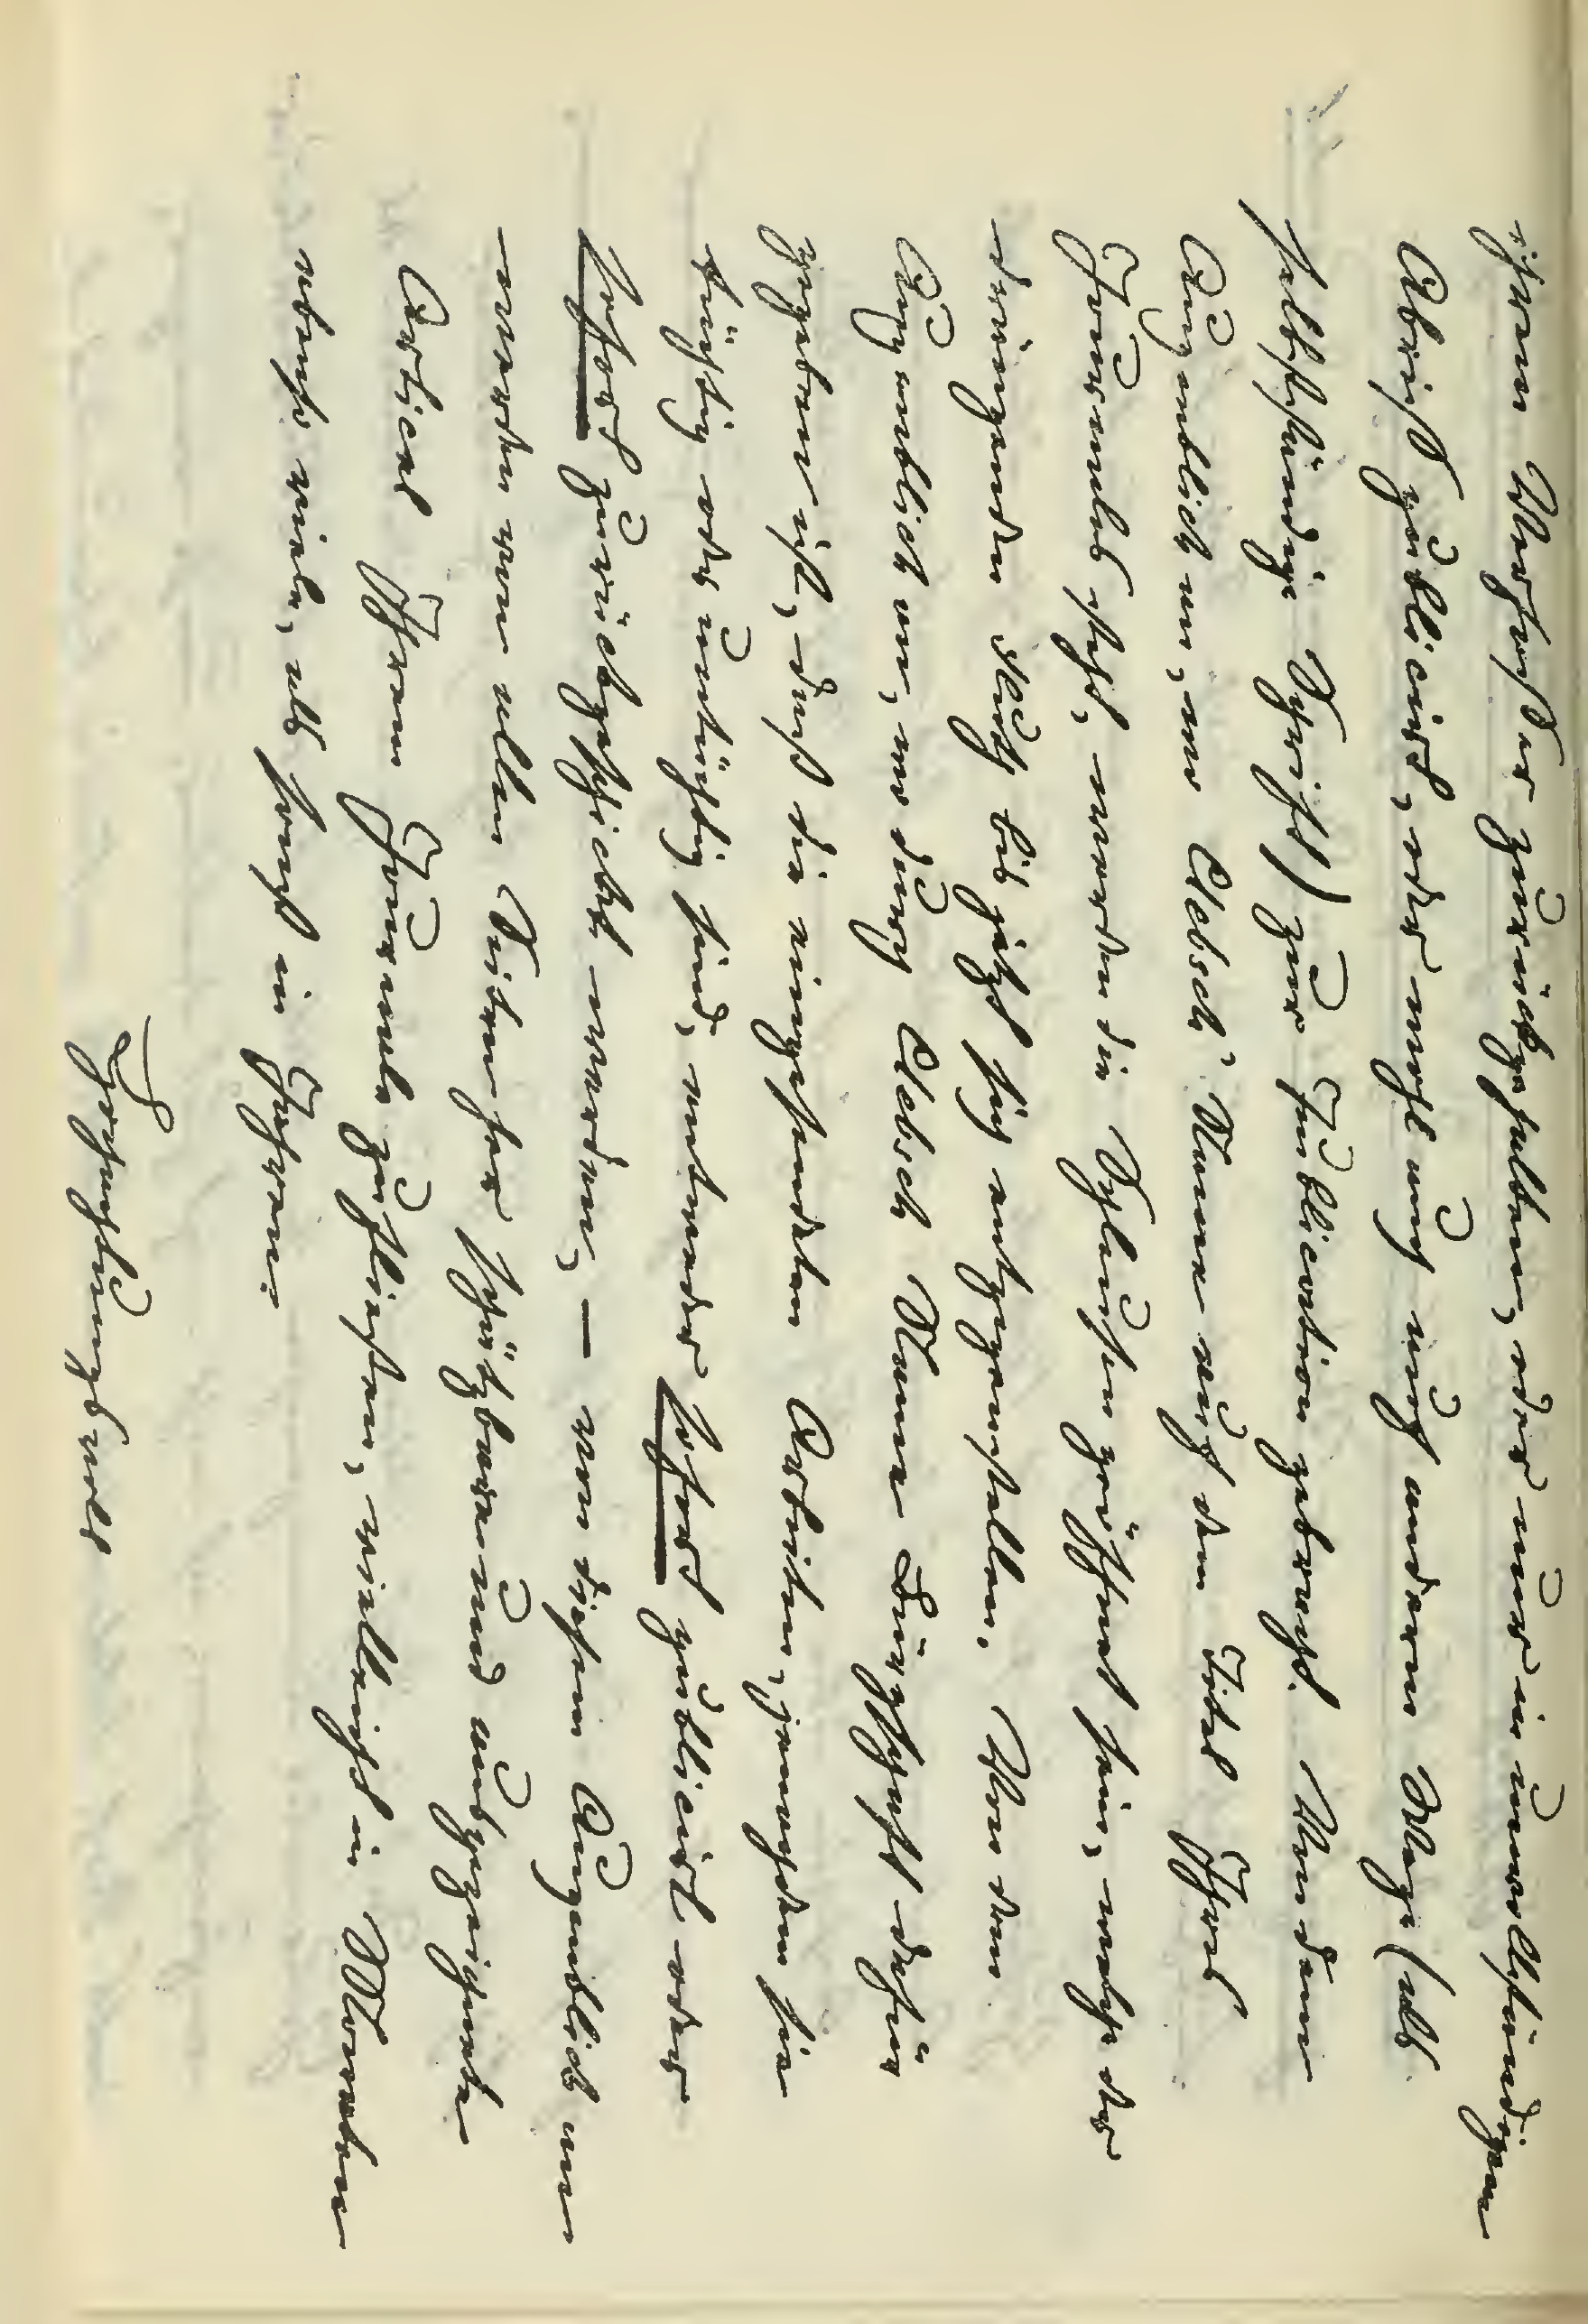 ihren Verfasser zurückgehalten, oder nur in unvollständigem
Abriß publicirt, oder wohl auch auf anderem Wege (als
selbstständige Schrift) zur Publication gebracht. Von dem
Augenblick an, wo Clebsch' Name auf dem Titel Ihres
Journals steht, werden die Schleusen geöffnet sein, welche der
dringenden Fluth bis jetzt sich entgegenstellen. Von dem
Augenblick an, wo durch Clebsch Name Bürgschaft dafür
gegeben ist, daß die eingesandten Arbeiten, jenachdem sie
tüchtig oder untüchtig sind, entweder sofort publicirt oder
sofort zurückgeschickt werden, – von diesem Augenblick an
werden von allen Seiten her schätzbare und ausgezeichnete
Artical Ihrem Journale zufließen, vielleicht in Monaten
ebenso viele, als sonst in Jahren.
Hochachtungsvoll